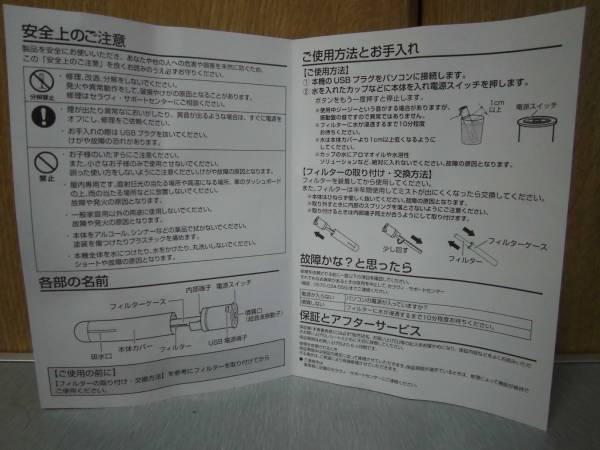 安全上のご注意
製品を安全にお使いいただき、あなたや他の人への危害や損害を未然に防ぐため、
この「安全上のご注意」を良くお読みのうえ必ずお守りください。
分解禁止
・修理、改造、分解をしないでください。
発火や異常動作をして、破損やけがの原因となることがあります。
修理はセラヴィ・サポートセンターにご相談ください。
・煙が出たり異常なにおいがしたり、異音が出るような場合は、すぐに電源を
オフにし、修理をご依頼ください。
・お手入れの際はUSBプラグを抜いてください。
けがや故障の恐れがあります。
禁止
・お子様のいたずらにご注意ください。
また、小さなお子様のみで使用させないでください。
誤った使い方をしないようにご注意ください。けがや故障の原因となります。
・屋内専用です。直射日光の当たる場所や高温になる場所、車のダッシュボード
の上、雨の当たる場所などに放置しないでください。
故障や発火の原因となります。
・一般家庭用以外の用途に使用しないでください。
故障や発火の原因となります。
・本体をアルコール、シンナーなどの薬品で拭かないでください。
塗装を傷つけたりプラスチックを痛めます。
・本機全体を水につけたり、水をかけたり、丸洗いしないでください。
ショートや故障の原因となります。
各部の名前
内部端子
電源スイッチ
フィルターケース
噴霧口
(超音波振動子)
吸水口
本体カバー
フィルター
USB電源端子
【ご使用の前に】
【フィルターの取り付け・交換方法】を参考にフィルターを取り付けてから
ご使用ください。
ご使用方法とお手入れ
【ご使用方法】
① 本機のUSBプラグをパソコンに接続します。
② 水を入れたカップなどに本体を入れ電源スイッチを押します。
ボタンをもう一度押すと停止します。
※使用中ジージーという音がする場合がありますが、
振動盤の音ですので異常ではありません。
※フィルターに水が浸透するまで10分程度
お待ちください。
※水は本体カバーより1cm以上低くなるように
してください。
※カップの水にアロマオイルや水溶性
ソリューションなど、絶対に入れないでください。故障の原因となります。
1cm
以上
電源スイッチ
【フィルターの取り付け・交換方法】
フィルターを装着してから使用してください。
また、フィルターは半年間使用してミストが出にくくなったら交換してください。
※本体はひねらず優しく扱いてください。故障の原因となります。
※取り外すときに内部のスプリングを落とさないようにご注意ください。
※取り付けるときは内部端子同士が合うようにして取り付けます。
少し回す
フィルターケース
フィルター
故障かな？と思ったら
電源が入らない
パソコンの電源が入っていますか？
フィルターに水が浸透するまで10分程度お待ちください。
保証とアフターサービス